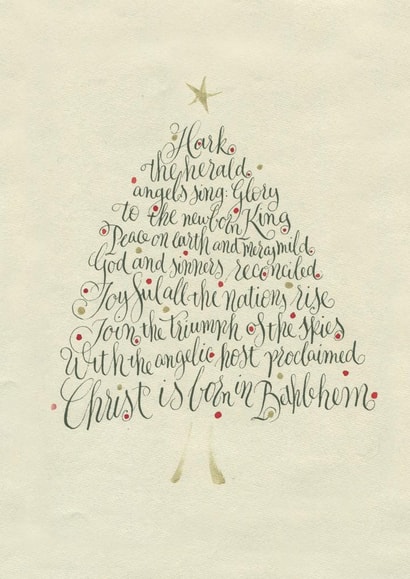 Hark
the herald
angels sing: Glory
to the newborn King
Peace on earth and mercy mild
God and sinners reconciled
Joyful all the nations rise
Join the triumph of the skies
With the angelic host proclaimed
Christ is born in Bethlehem